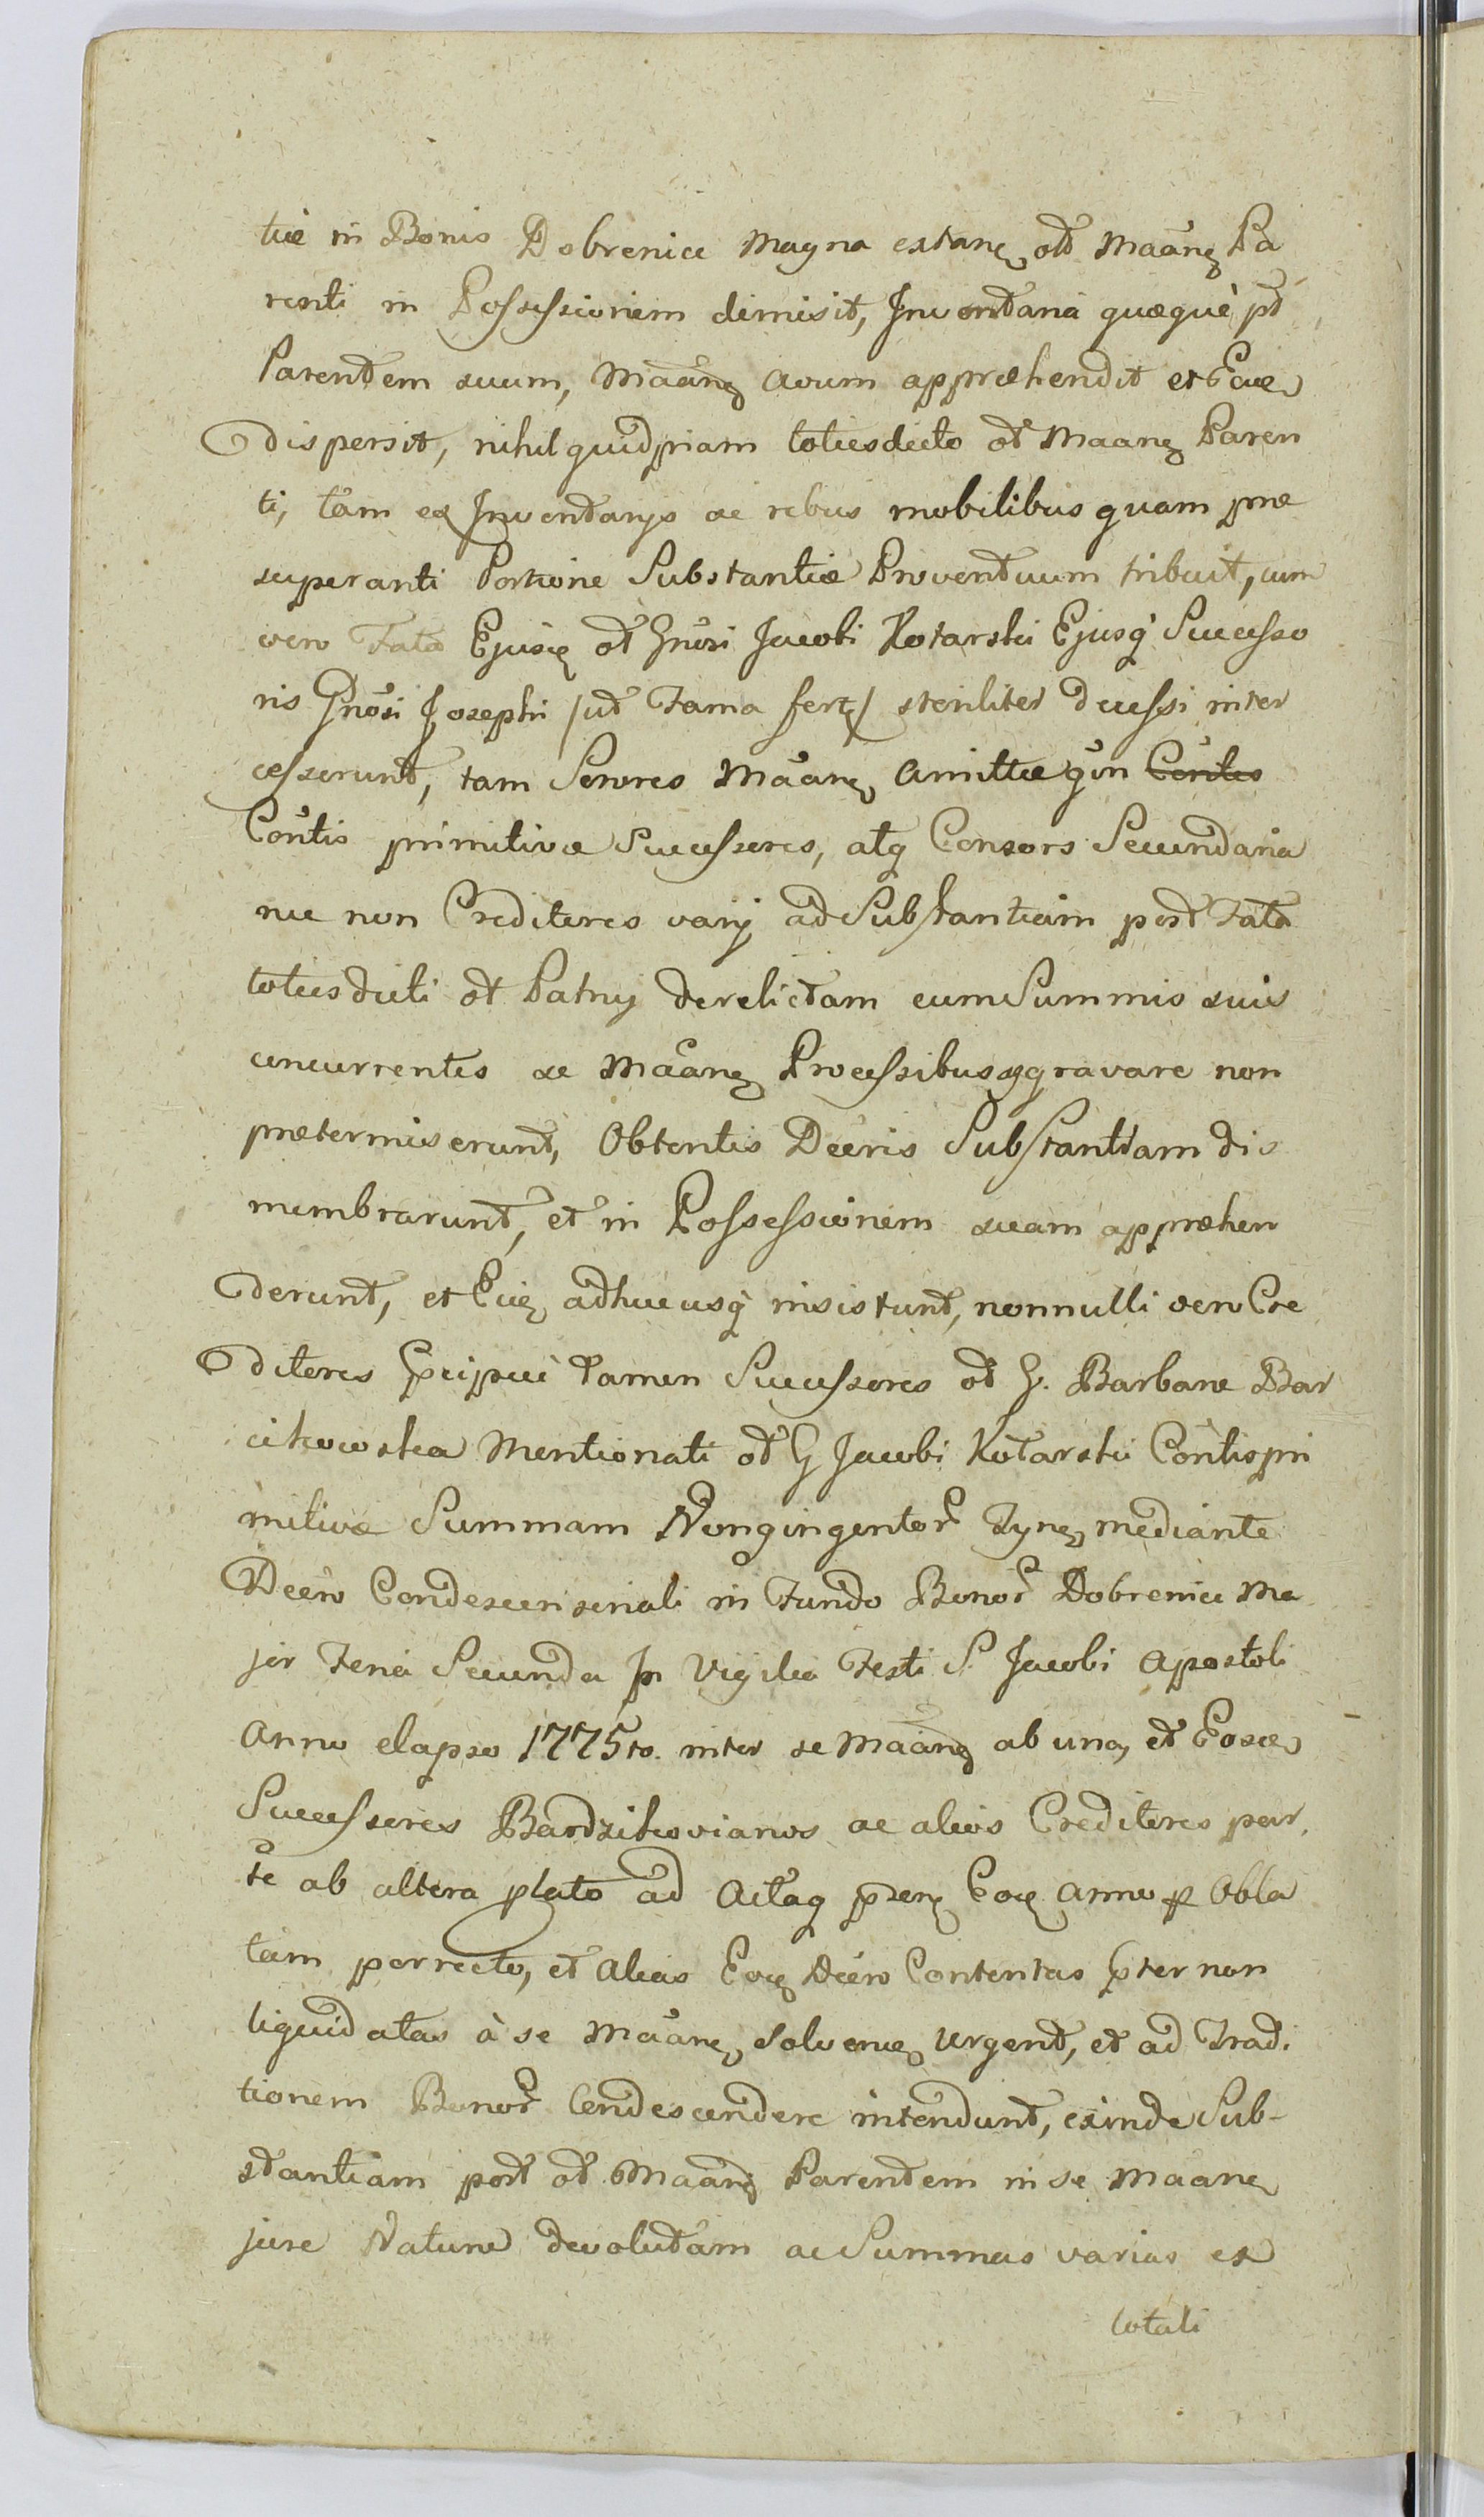 tiæ in Bonis Dobrenice Magna extanѯ, ol̃ Mãanѯ Pa
renti in Possessionem dimisit, Inventaria quæquè pt̃
Parentem suum, Mãanѯ Avum appræhendit et Eaѯ
dispersit, nihil quidpiam totiesdicto ol̃ Maanѯ Paren
ti, tam ex Inventarijs ac rebus mobilibus quam præ
superanti Portione Substantiæ Proventuum tribuit, cum
vero Fata Ejusѯ ol̃ Gñosi Jacobi Kotarski Ejusq̃ Successo
ris Gñosi Josephi /ut Fama fert/ steriliter decessi inter
cesserunt, tam Sorores Mãanѯ Amittæ q̃m Cõntes
Cõntis primitivæ Successores, atq̃ Consors Secundaria
nec non Creditores varij ad Substantiam post Fata
totiesdicti ol̃ Patruj derelictam cum Summis suis
concurrentes se Mãanѯ Processibus aggravare non
prætermiserunt, Obtentis Decr̃is Substantiam dis
membrarunt, et in Possessionem suam appræhen
derunt, et Eiѯ adhucusq̃ insistunt, nonnulli vero Cre
ditores p̃cipuè tamen Successores ol̃ G. Barbaræ Bar
cikowska Mentionati ol̃ G Jacobi Kotarski Cõntis pri
mitivæ Summam Nongingentor̃ Fynѯ mediante
Decr̃o Condescensoriali in Fundo Bonor̃ Dobrenice Ma
jor Feria Secunda In Vigilia Festi S. Jacobi Apostoli
Anno elapso 1775to. inter se Mãanѯ ab una, et Eosѯ
Successores Bardzikovianos ac alios Creditores par,
te ab altera plato ad Actaq p̃senѯ Eoѯ Anno p Obla
tam porrecto, et alias Eoѯ Decr̃o Contentas p̃ter non
liquidatas à se Mãanѯ solvenѯ Urgent, et ad Tradi
tionem Bonor̃ Condescendere intendunt, exinde Sub-
stantiam post ol̃ Mãanѯ Parentem in se Maanѯ
jure Naturæ devolutam ac Summas varias ex
totali